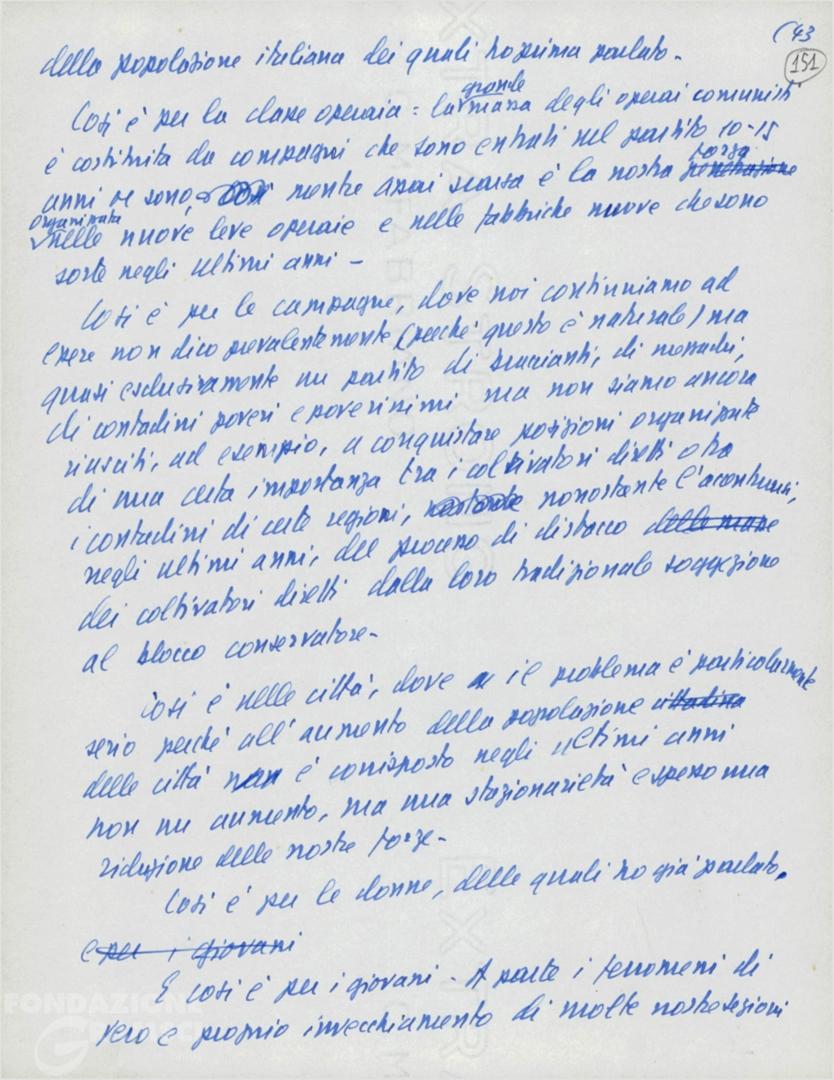 (43
151
della popolazione italiana dei quali ho prima parlato.
Così è per la classe operaia: la grande massa degli operai comunisti
è costituita da compagni che sono entrati nel partito 10-15
anni or sono, mentre assai scarsa è la nostra forza penetrazione
organizzata nelle nuove leve operaie e nelle fabbriche nuove che sono
sorte negli ultimi anni -
Così è per le campagne, dove noi continuiamo ad
essere non dico prevalentemente (perché questo è naturale) ma
quasi esclusivamente un partito di braccianti, di mezzadri,
di contadini poveri e poverissimi ma non siamo ancora
riusciti, ad esempio, a conquistare posizioni organizzate
di una certa importanza tra i coltivatori diretti o tra
i contadini di certe regioni, nonostante l'accentuarsi,
negli ultimi anni, del processo di distacco delle masse
dei coltivatori diretti dalla loro tradizionale soggezione
al blocco conservatore -
Così è nelle città, dove il problema è particolarmente
serio perché all'aumento della popolazione cittadina
delle città non è corrisposto negli ultimi anni
non un aumento, ma una stazionarietà e spesso una
riduzione delle nostre forze -
Così è per le donne, delle quali ho già parlato.
e per i giovani
E così è per i giovani - A parte i fenomeni di
vero e proprio invecchiamento di molte nostre sezioni
FONDAZIONE